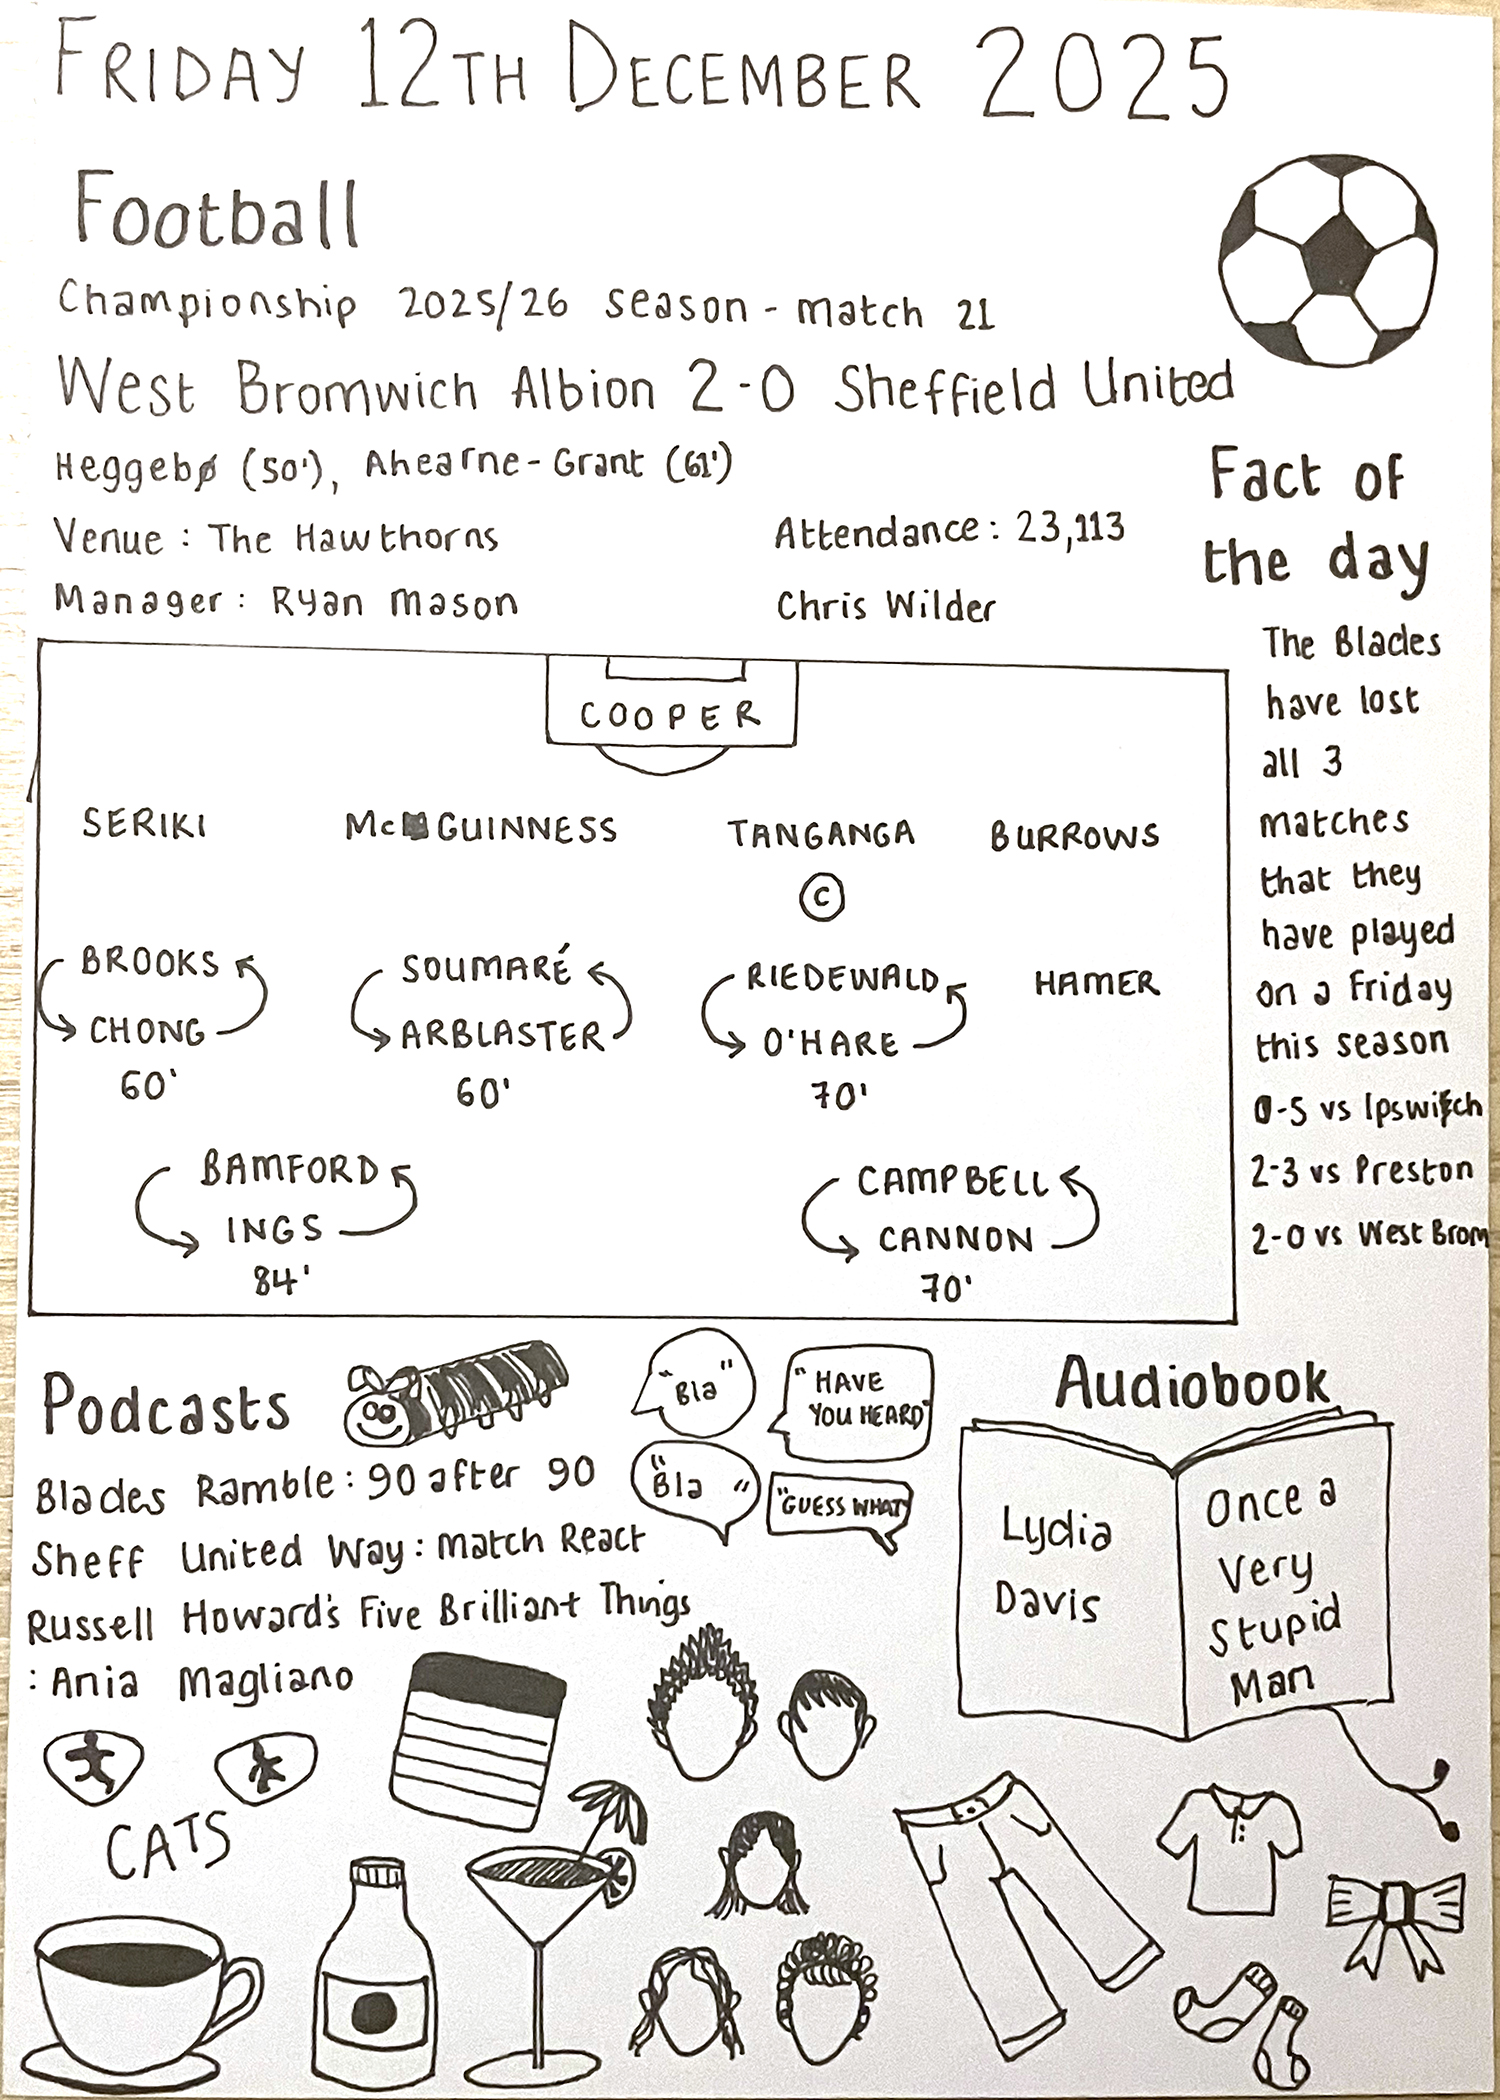 FRIDAY 12TH DECEMBER 2025
Football
Championship 2025/26 season - match 21
West Bromwich Albion 2-0 Sheffield United
Heggebø (50'), Ahearne-Grant (61')
Venue : The Hawthorns
Attendance : 23,113
Manager : Ryan Mason
Chris Wilder
COOPER
SERIKI McGUINNESS TANGANGA BURROWS
C
BROOKS SOUMARÉ RIEDEWALD HAMER
CHONG ARBLASTER O'HARE
60' 60' 70'
BAMFORD CAMPBELL
INGS CANNON
84' 70'
Fact of
the day
The Blades
have lost
all 3
matches
that they
have played
on a Friday
this season
0-5 vs Ipswich
2-3 vs Preston
2-0 vs West Brom
Podcasts
Blades Ramble : 90 after 90
Sheff United Way : Match React
Russell Howard's Five Brilliant Things
: Ania Magliano
"Bla"
"HAVE
YOU HEARD"
"Bla"
"GUESS WHAT"
Audiobook
Lydia
Davis
Once a
Very
Stupid
Man
CATS